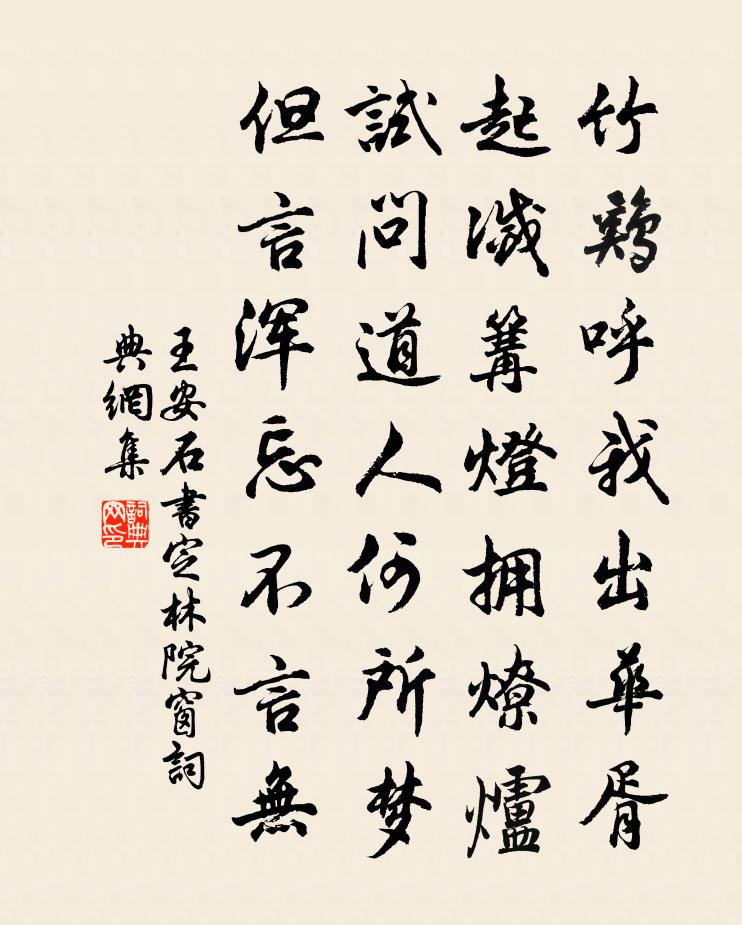 竹鷄呼我出華胥
起滅篝燈拥燎爐
試問道人何所梦
但言浑忘不言無
王安石書定林院窗詞
典網集
詞典
网印